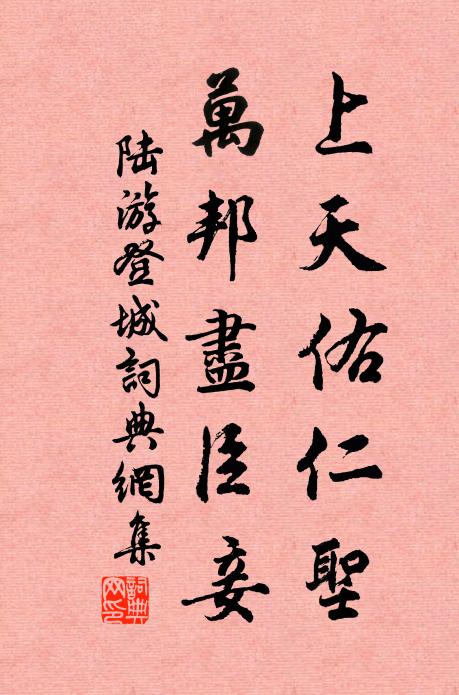 上天佑仁聖
萬邦盡臣妾
陸游登城詞典網集
詞典網印